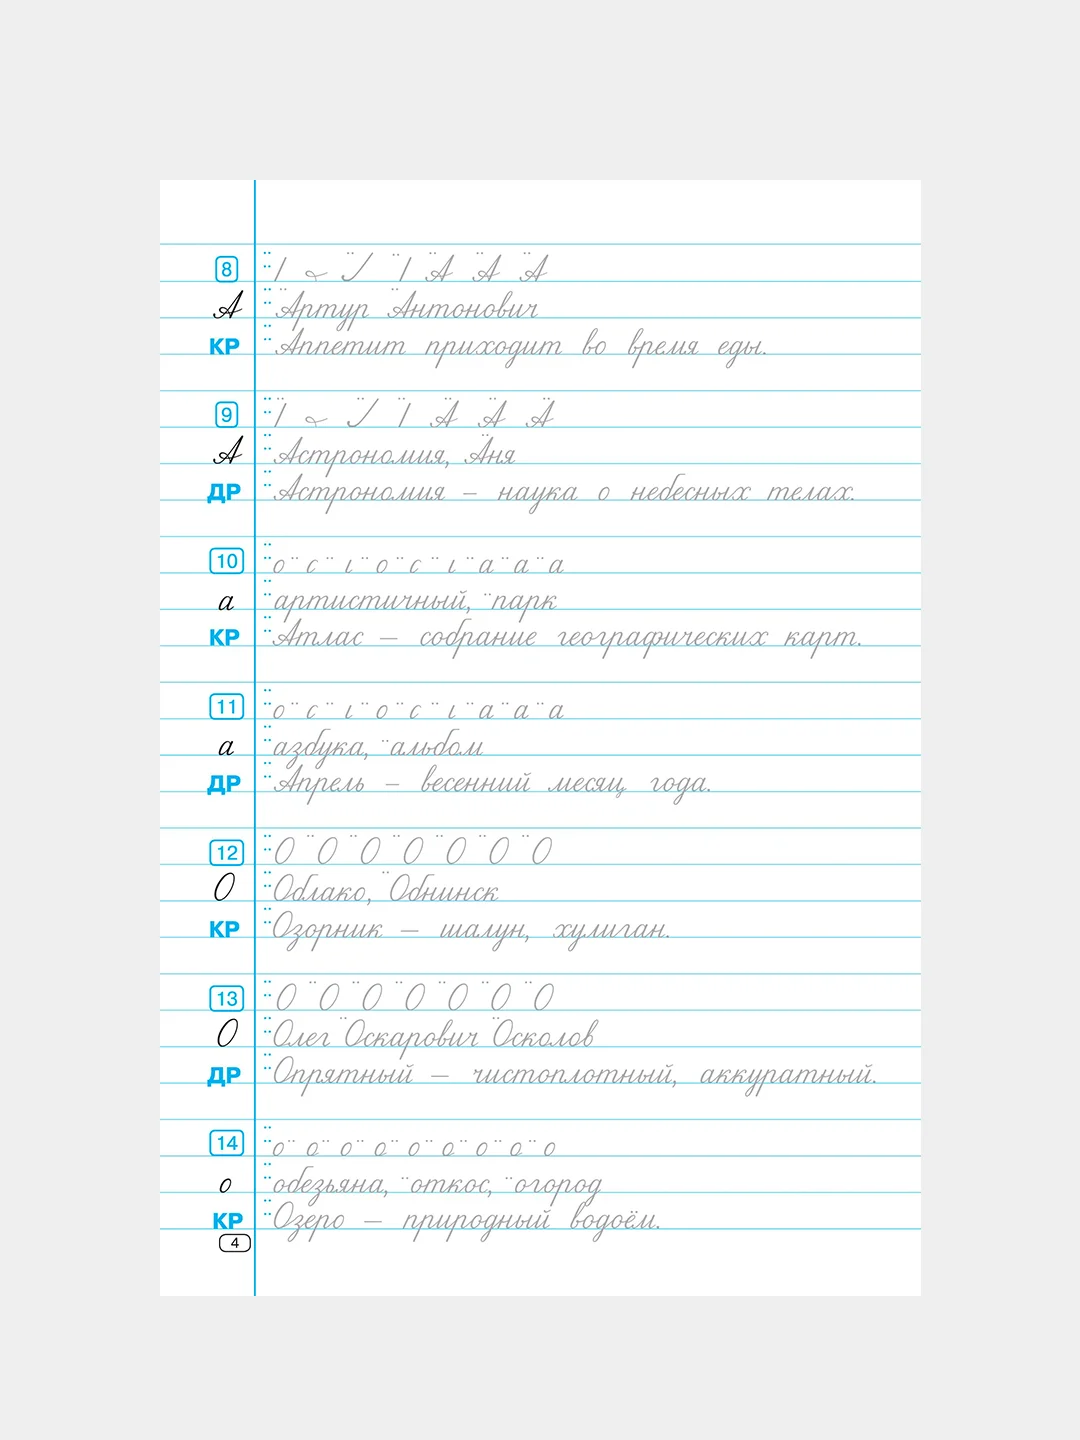 8 А А А
А Артур Антонович
КР Аппетит приходит во время еды.
9 А А А
А Астрономия, Аня
ДР Астрономия – наука о небесных телах.
10 о с ı о с ı а а а
а артистичный, парк
КР Атлас – собрание географических карт.
11 о с ı о с ı а а а
а азбука, альбом
ДР Апрель – весенний месяц года.
12 О О О О О О О
О Облако, Обнинск
КР Озорник – шалун, хулиган.
13 О О О О О О О
О Олег Оскарович Осколов
ДР Опрятный – чистоплотный, аккуратный.
14 о о о о о о о о о
о обезьяна, откос, огород
КР Озеро – природный водоём.
4